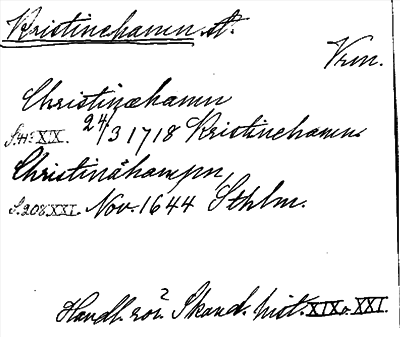 Kristinehamn st.
Vrm.
Christinæhamn
S. 41: XX. 24/3 1718 Kristinehamn.
Christinæhampn,
S. 208 XXI. Nov. 1644 Sthlm.
Handl. rör. Skand. hist. XIX o. XXI.